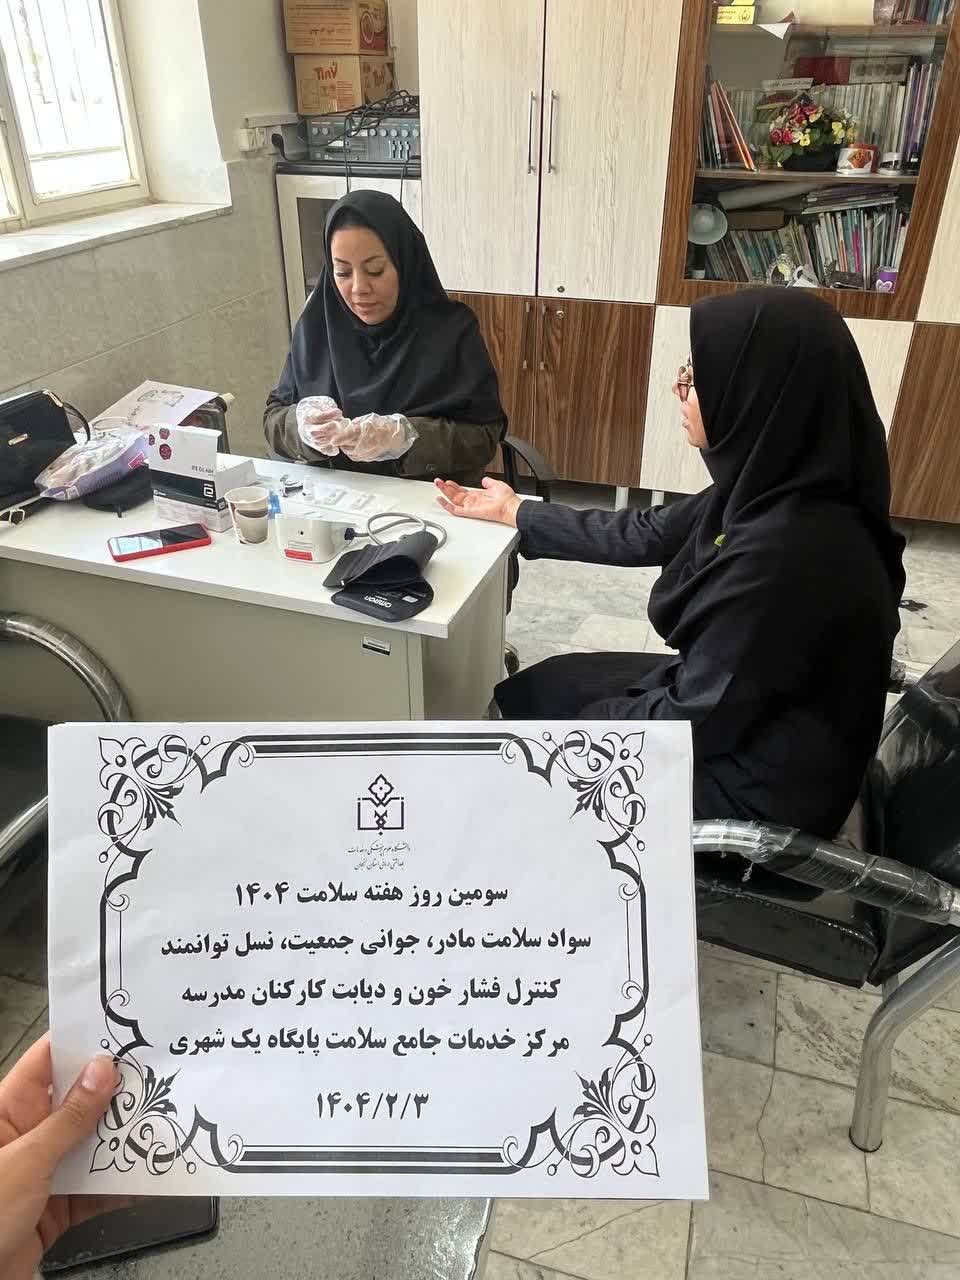 TINY
HIV 1/2 3.0
OMRON
دانشگاه علوم پزشکی و خدمات
بهداشتی درمانی استان زنجان
سومین روز هفته سلامت ۱۴۰۴
سواد سلامت مادر، جوانی جمعیت، نسل توانمند
کنترل فشار خون و دیابت کارکنان مدرسه
مرکز خدمات جامع سلامت پایگاه یک شهری
۱۴۰۴/۲/۳